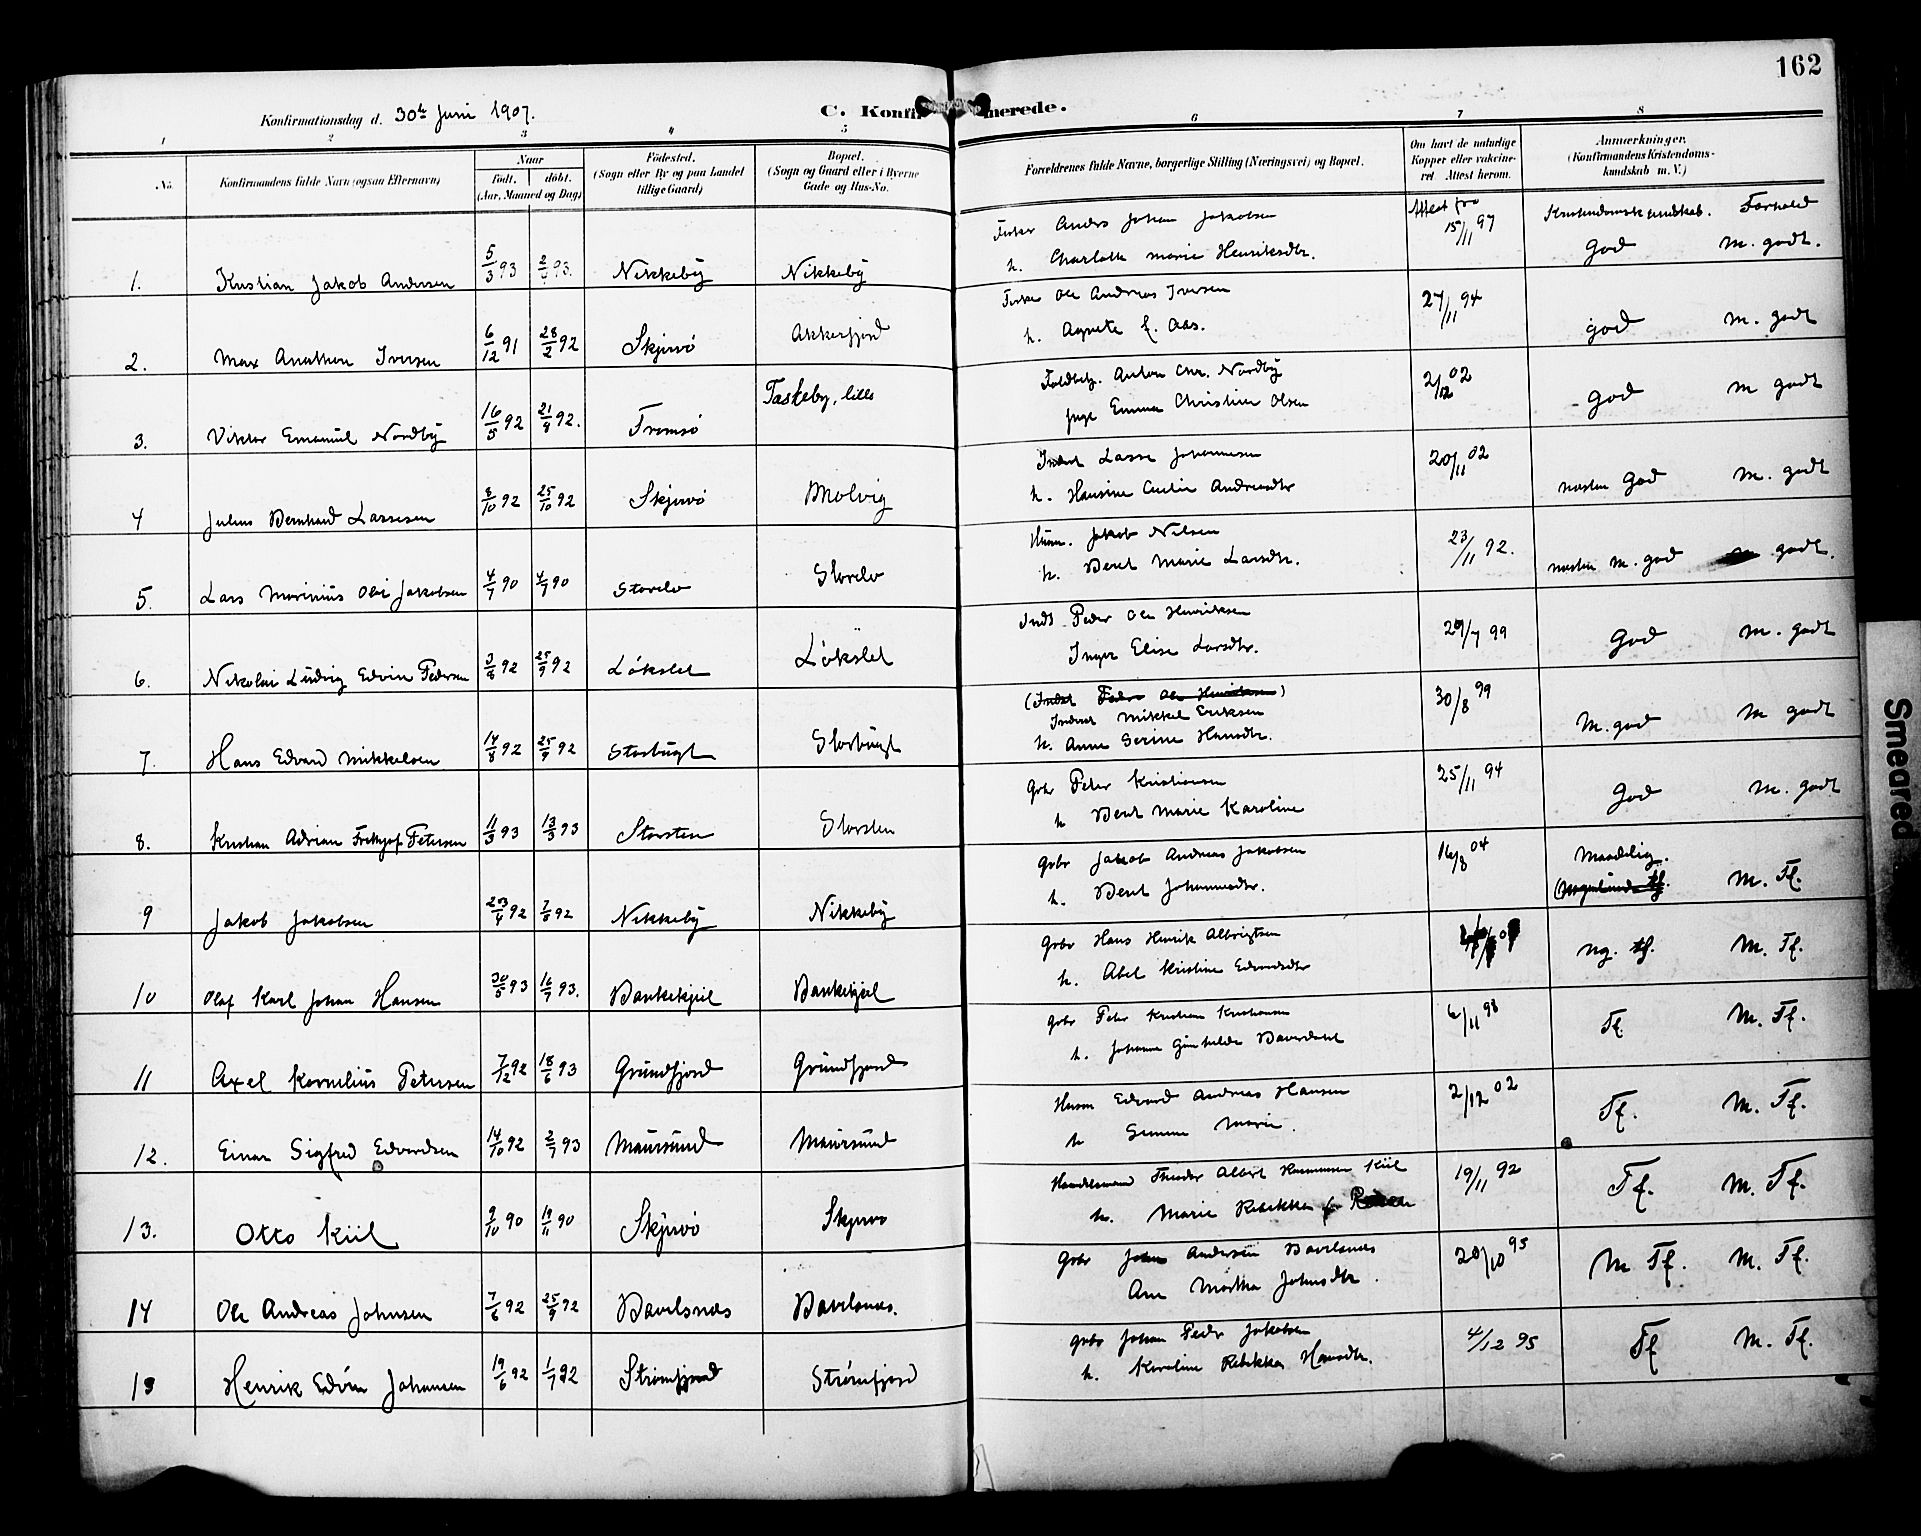 162
Konfirmationsdag d. 30te Juni 1907.
C. Konfirmerede.
1 2 3 4 5 6 7 8
No.
Konfirmandens fulde Navn (ogsaa Efternavn).
Naar
födt. döbt.
(Aar, Maaned og Dag)
Födested.
(Sogn eller By og paa Landet
tillige Gaard)
Bopæl.
(Sogn og Gaard eller i Byerne
Gade og Hus-No.
Forældrenes fulde Navne, borgerlige Stilling (Næringsvei) og Bopæl.
Om havt de naturlige
Kopper eller vakcine-
ret. Attest herom.
Anmærkninger.
(Konfirmandens Kristendoms-
kundskab m. V.)
Kristendomskundskab. Forhold
1. Kristian Jakob Andersen 5/3 93 93. Nikkeby Nikkeby
Fisker Anders Johan Jakobsen
h. Charlotte Marie Henriksdtr.
Attest fra
15/11 97 God m. godt.
2. Max Anathon Iversen 6/12 91 28/2 92 Skjervö Akkarfjord
Fisker Ole Andreas Iversen
h. Agnete f. Aas.
27/11 94 god m. godt
3. Viktor Emanuel Nordby 16/5 92 21/8 92. Tromsö Taskeby, lille
Anton Chr. Nordby
Emma Christine Olsen
2/12 02 God m godt
4 Julius Bernhard Lassesen 8/10 92 25/10 92 Skjervö Molvig
Inderst Lasse Johannesen
h. Hansine Andreasdtr
20/11 02 næsten God m. godt
5. Lars Marinius Olai Jakobsen 4/7 90 4/7 90 Storelv Storelv
Husm. Jakob Nilsen
h. Beret Marie Larsdtr.
23/11 92. næsten m. god godt.
6. Nikolai Ludvig Edvin Pedersen 3/8 92 25/9 92 Lökslet Lökslet
Inds Peder Ole Henriksen
Inger Elise Larsdtr.
29/7 99 God m. godt
7. Hans Edvard Mikkelsen 14/8 92 25/9 92 Storbugt Storbugt
(Inderst Peder Ole Henriksen)
Inderst Mikkel Eriksen
h. Anne Serine Hansdtr.
30/8 99 M. god m godt
8. Kristian Adrian Frithjof Petersen 11/3 93 13/3 93 Storsten Storsten
Gbr Peter Kristiansen
h Beret Marie Karoline
25/11 94 God m. godt
9 Jakob Jakobsen 23/4 92 7/8 92 Nikkeby Nikkeby
Gbr Jakob Andreas Jakobsen
h. Beret Johannesdtr.
16/8 04 Maadelig.
M. Tf.
10 Olaf Karl Johan Hansen 30/5 93 16/7 93. Vankekjeil Vankekjeil
Gbr Hans Henrik Albrigtsen
h. Abel Kristine Edvardsdtr
ng. tf. M. Tf.
11 Axel Kornelius Petersen 7/12 92 18/6 93 Grundfjord Grundfjord
Gbr Peter Kristian Kristiansen
h. Johanna Gunhilde
6/11 98 Tf. M. Tf.
12. Einar Sigfred Edvardsen 14/10 92 2/7 93 Maursund Maursund
Husm Edvard Andreas Hansen
h Marie.
2/12 02 Tf. M. Tf.
13. Otto Kiil 9/10 90 19/11 90 Skjervö Skjervö
Handelsmand Theodor Albert Rasmussen Kiil
h. Marie Rebekka f.
19/11 92 Tf. M. Tf.
14 Ole Andreas Johnsen 7/6 92 25/9 92 Bavelsnæs Bavelsnæs.
Gbr John Andersen Bavelsnæs
Ane Martha Johnsdtr.
28/10 93 M Tf. M. Tf.
15 Henrik Edvin Johansen 19/6 92 1/7 92 Strømfjord Strømfjord
Gbr Johan Peder Jakobsen
h. Karoline Rebekka Hansdtr.
4/12 95 Tf M. Tf.
Smeared